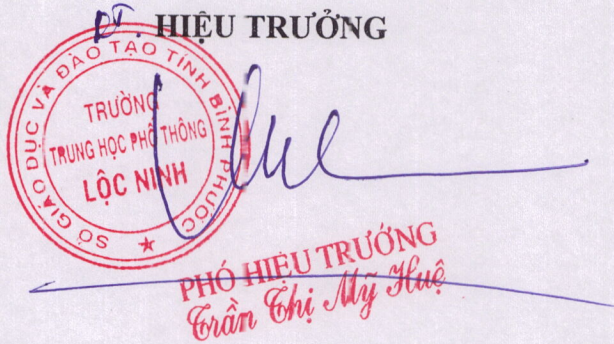 KT. HIỆU TRƯỞNG
SỞ GIÁO DỤC VÀ ĐÀO TẠO TỈNH BÌNH PHƯỚC
TRƯỜNG
TRUNG HỌC PHỔ THÔNG
LỘC NINH
PHÓ HIỆU TRƯỞNG
Trần Thị Mỹ Huệ